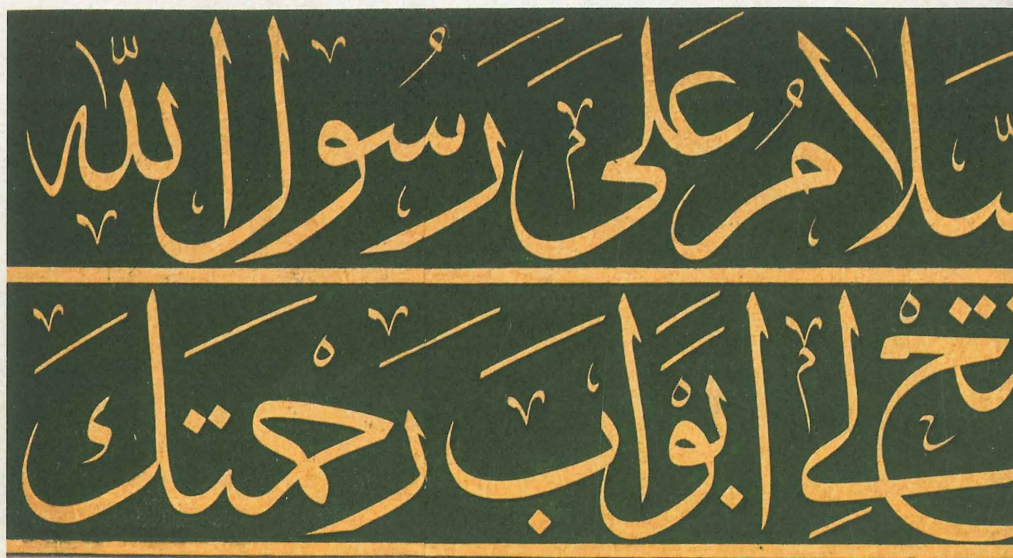 سَّلَامُ عَلَى رَسُولِ اللّٰه
فْتَحْ لِي اَبْوَابَ رَحْمَتِكَ